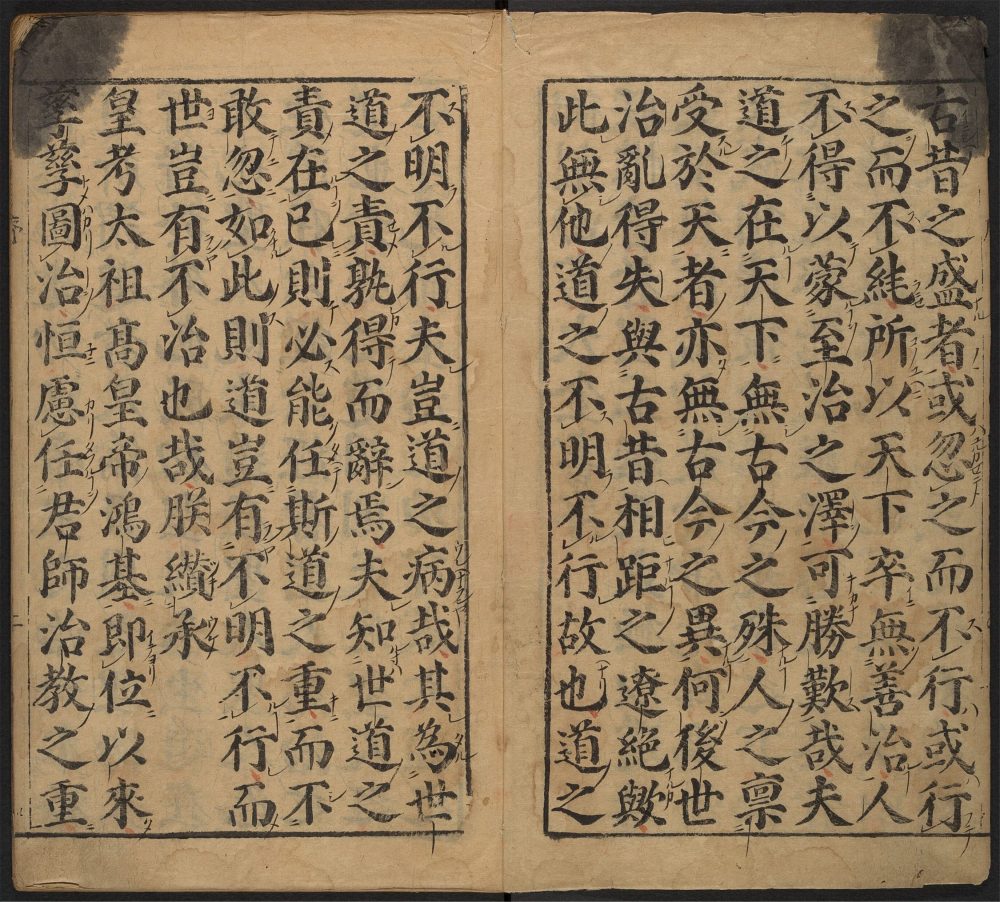 古昔之盛者或忽之而不行或行
之而不能所以天下卒無善治人
不得以蒙至治之澤可勝歎哉夫
道之在天下無古今之殊人之禀
受於天者亦無古今之異何後世
治亂得失與古昔相距之遼絕歟
此無他道之不明不行故也道之
不明不行夫豈道之病哉其為世
道之責孰得而辭焉夫知世道之
責在已則必能任斯道之重而不
敢忽如此則道豈有不明不行而
世豈有不治也哉朕纘承
皇考太祖髙皇帝鴻基即位以來
孳孳圖治恒慮任君師治教之重